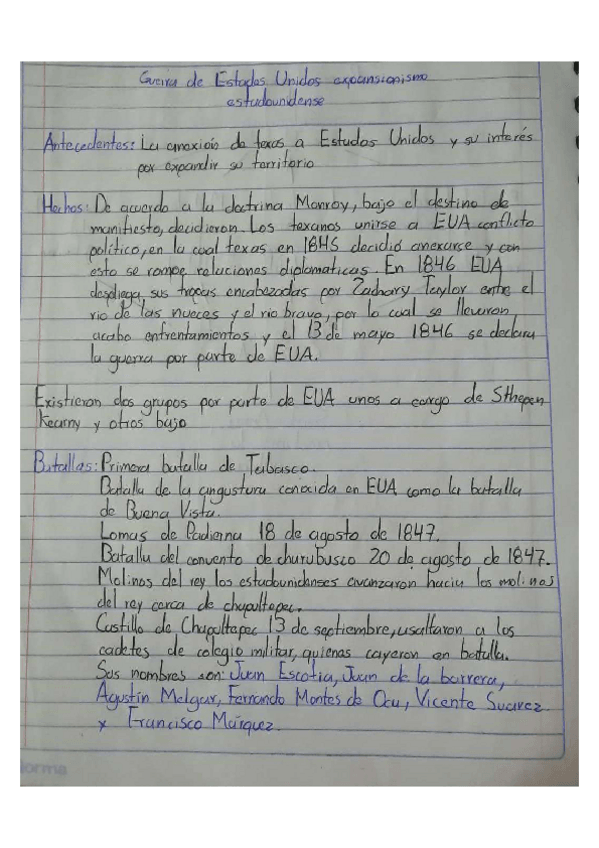 Guerra de Estados Unidos expansionismo
estadounidense
Antecedentes: La anexión de texas a Estados Unidos y su interés
por expandir su territorio
Hechos: De acuerdo a la doctrina Monroy, bajo el destino de
manifiesto, decidieron Los texanos unirse a EUA conflicto
político, en la cual texas en 1845 decidió anexarse y con
esto se rompe relaciones diplomaticas. En 1846 EUA
despliega sus tropas encabezadas por Zachary Taylor entre el
rio de las nueces y el rio bravo, por lo cual se llevaron
acabo enfrentamientos y el 13 de mayo 1846 se declara
la guerra por parte de EUA.
Existieron dos grupos por parte de EUA unos a cargo de Sthepen
Kearny y otros bajo
Batallas: Primera batalla de Tabasco.
Batalla de la angustura conocida en EUA como la batalla
de Buena Vista.
Lomas de Padierna 18 de agosto de 1847.
Batalla del convento de churubusco 20 de agosto de 1847.
Molinos del rey los estadounidenses avanzaron hacia los molinos
del rey cerca de chapultepec.
Castillo de Chapultepec 13 de septiembre, asaltaron a los
cadetes de colegio militar, quienes cayeron en batalla.
Sus nombres son: Juan Escotia, Juan de la barrera,
Agustín Melgar, Fernando Montes de Oca, Vicente Suarez
y Francisco Márquez.
norma